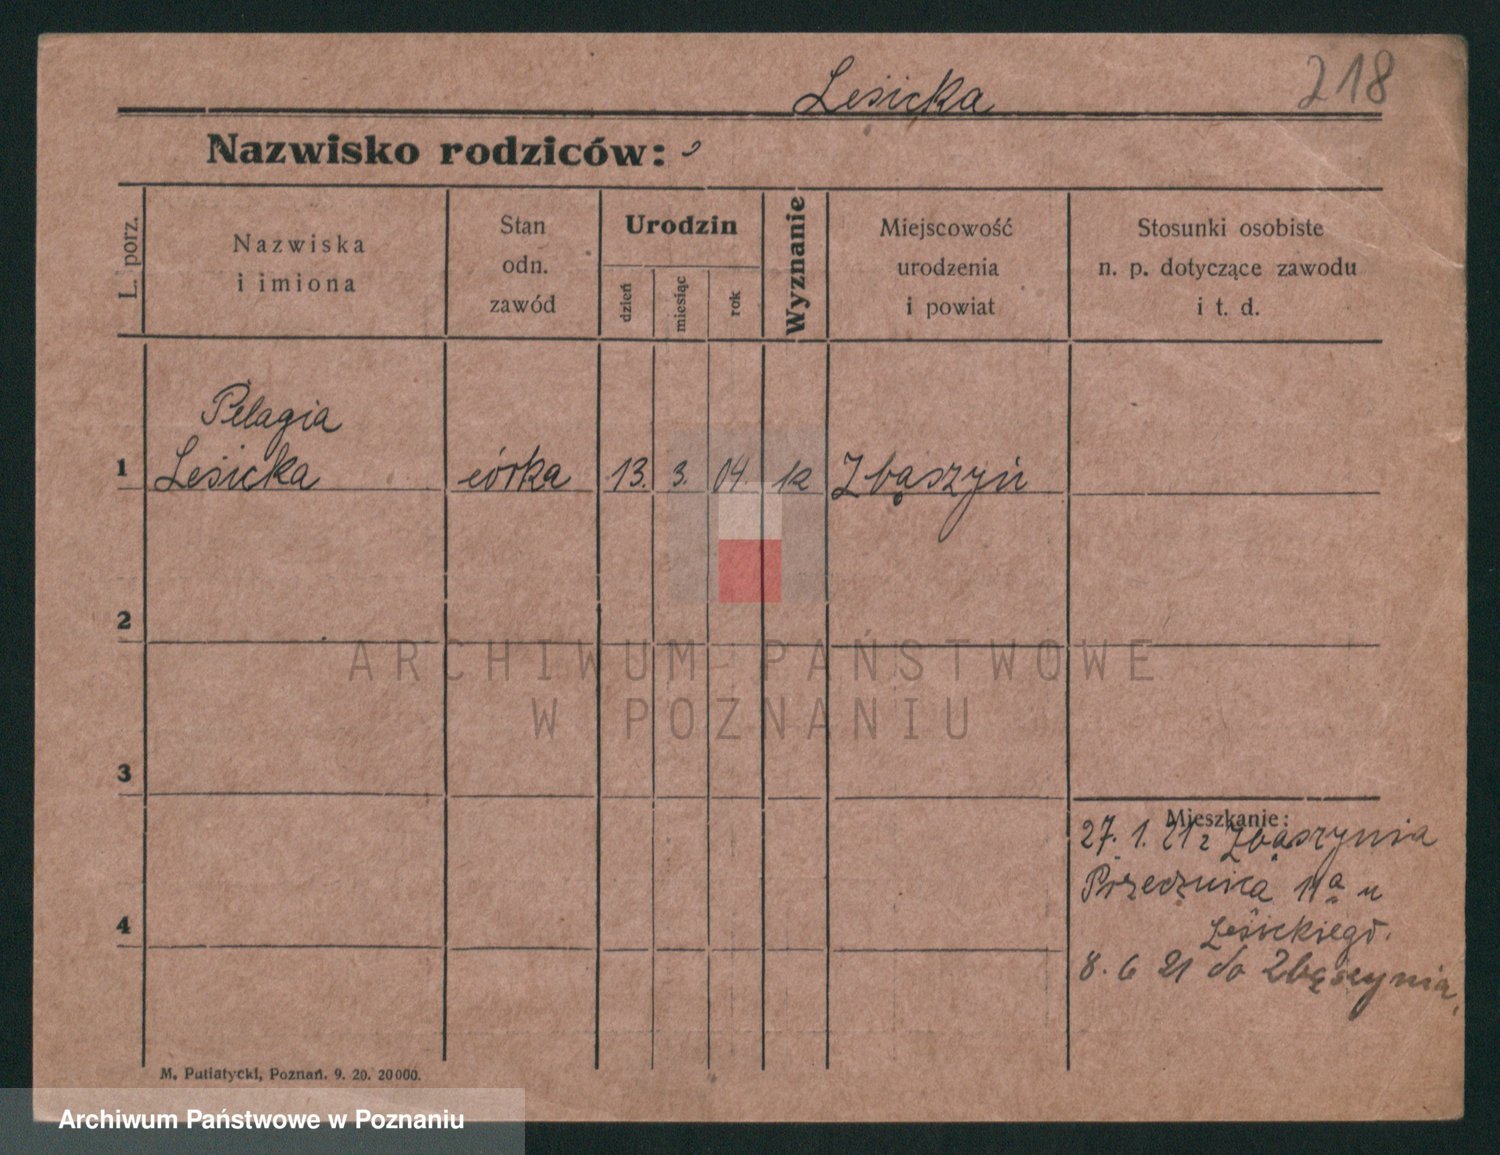 Lesicka
218
Nazwisko rodziców:
L. porz.
Nazwiska
i imiona
Stan
odn.
zawód
Urodzin
dzień
miesiąc
rok
Wyznanie
Miejscowość
urodzenia
i powiat
Stosunki osobiste
n. p. dotyczące zawodu
i t. d.
Pelagia
1 Lesicka córka 13. 3. 04. k Zbąszyń
2
ARCHIWUM PAŃSTWOWE
W POZNANIU
3
Mieszkanie:
27. 1. 21 z Zbąszynia
Przecznica 11a u
Lesickiego.
4
8. 6 21 do Zbąszynia,
M. Putiatycki, Poznań. 9. 20. 20000.
Archiwum Państwowe w Poznaniu